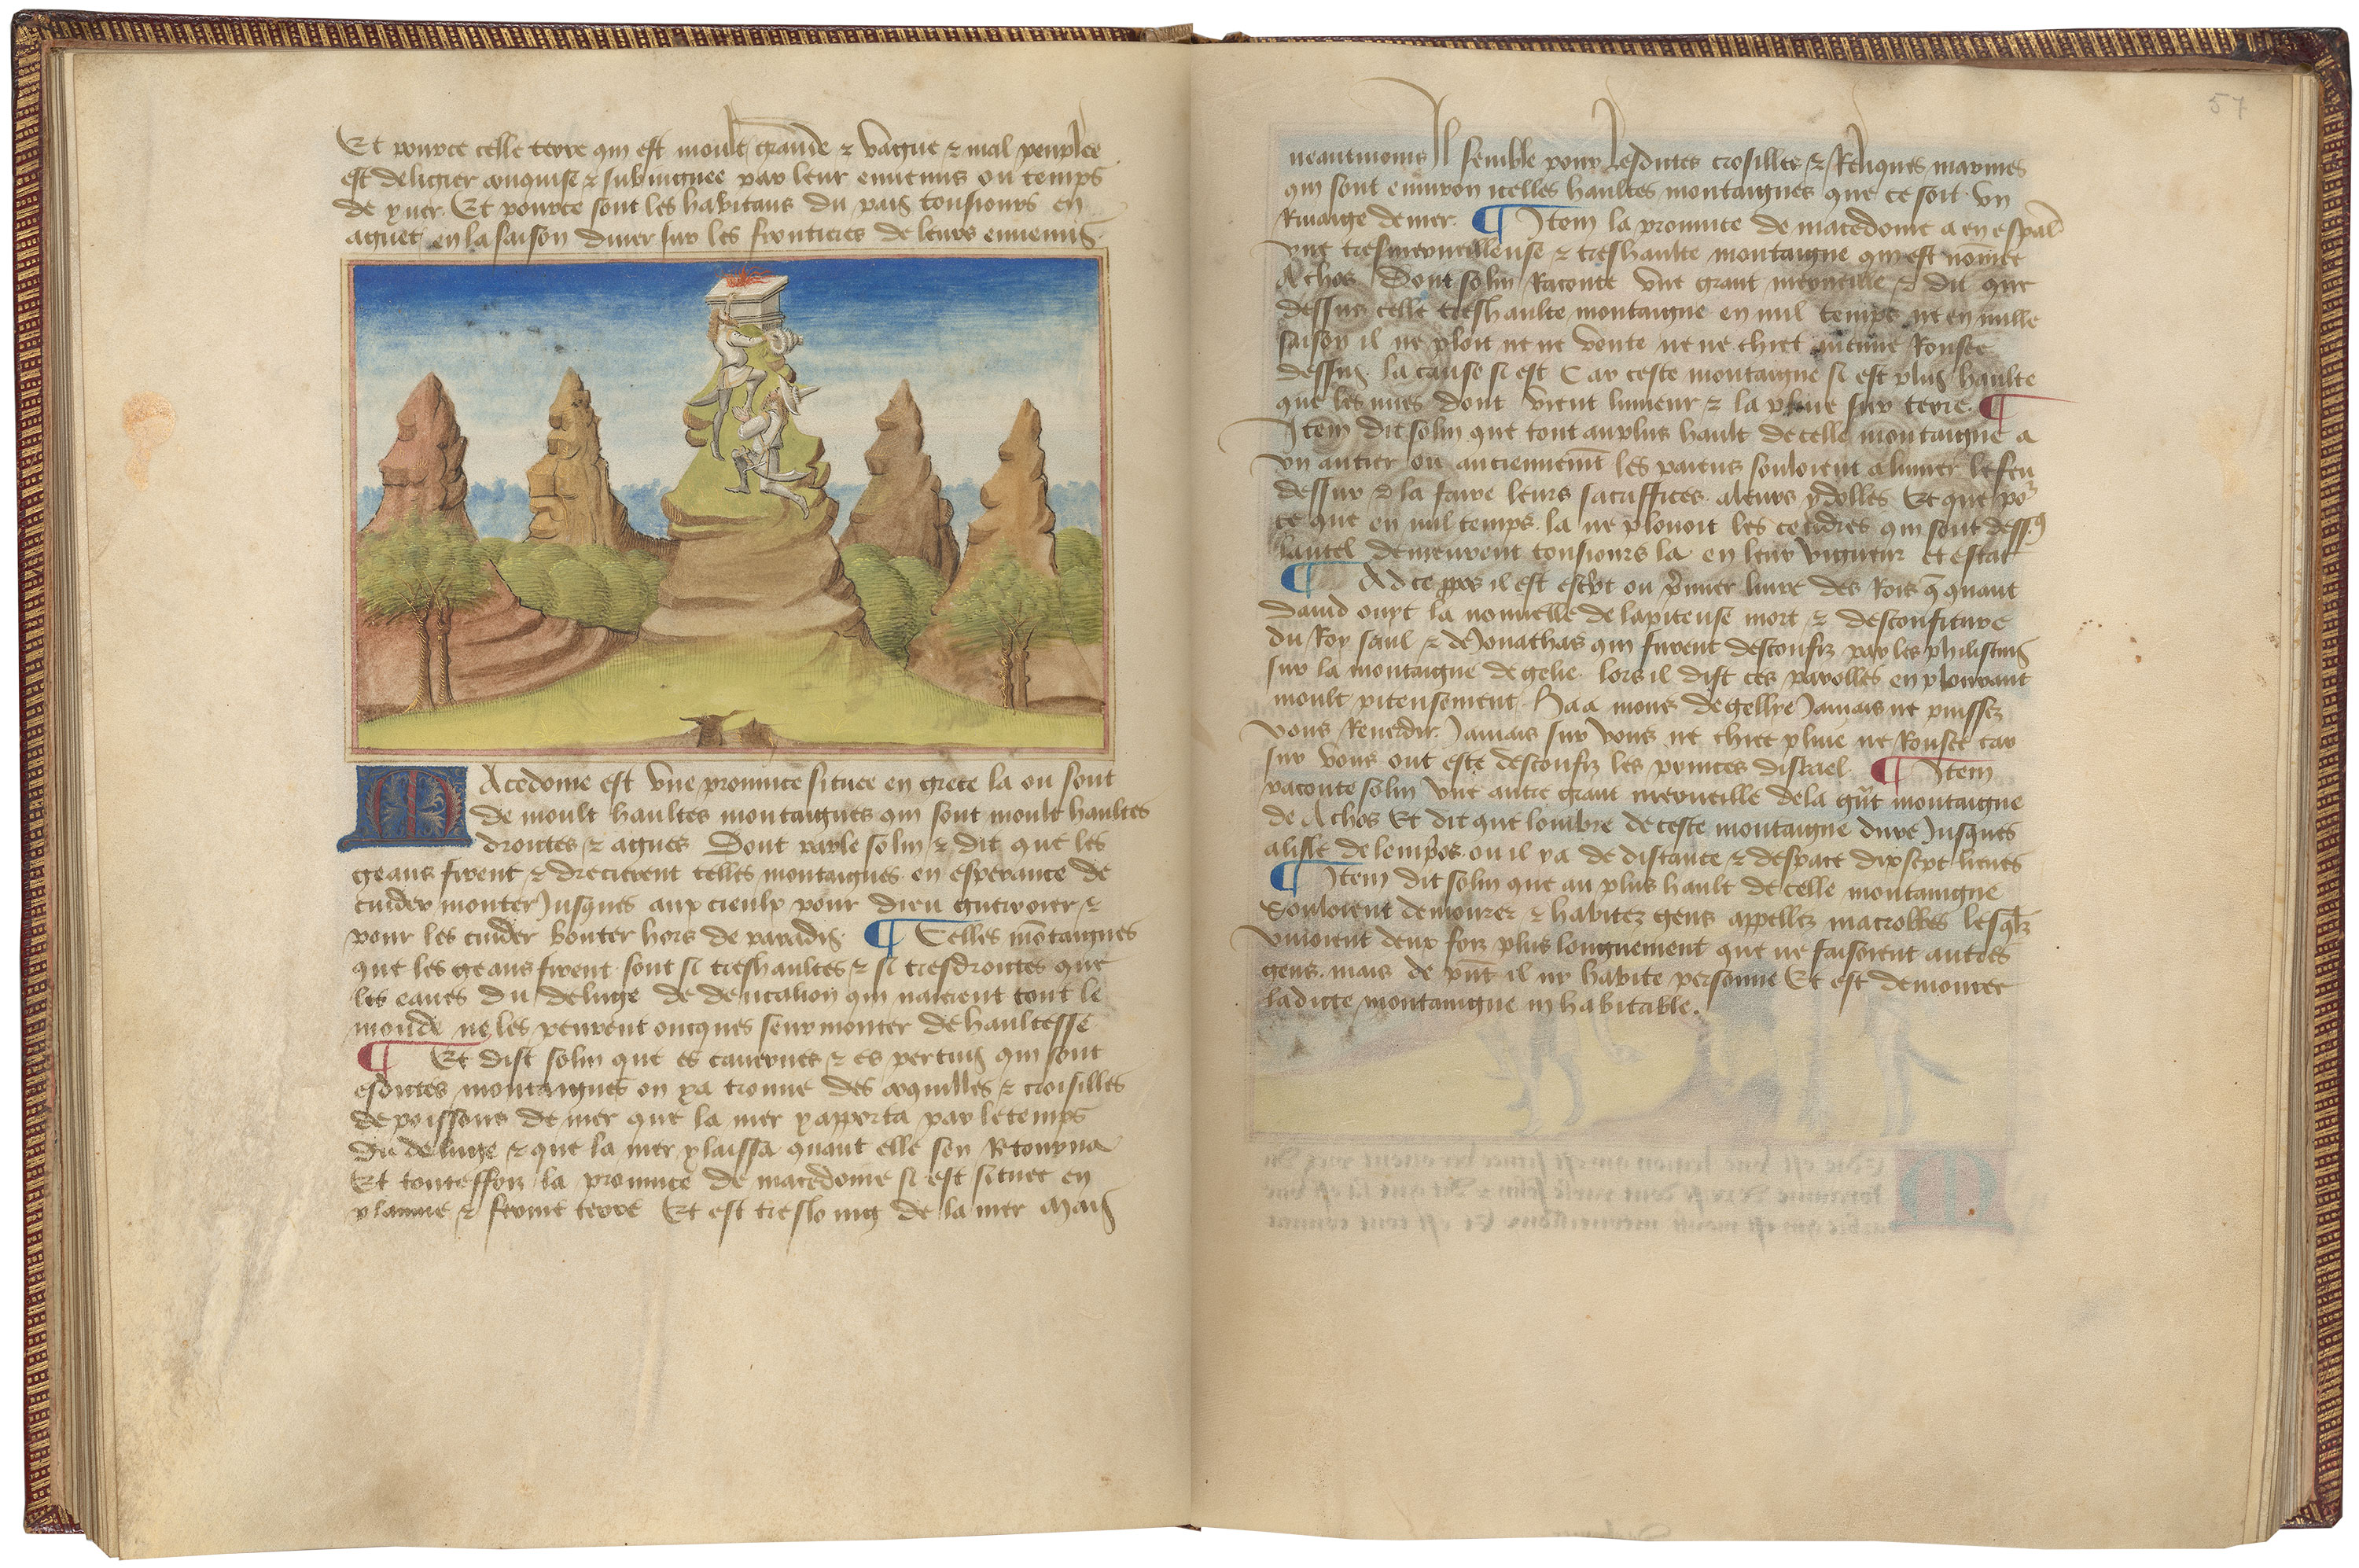 Et pource celle terre qui est moult grande & vague & mal peuplee
est de legier conquise & subiuguee par leur ennemis ou temps
de yuer. Et pource sont les habitans du pais tousiours en
aguet en la saison diuer sur les frontieres de leurs ennemis.
Macedoine est vne prouince situee en grece la ou sont
de moult haultes montaignes qui sont moult haultes
droictes & agues Dont parle solin & dit que les
geans firent & drecierent celles montaignes en esperance de
cuider monter Jusques aux cieulx pour dieu guerroier &
pour les cuider bouter hors de paradis. ¶ Celles mōtaignes
que les geans firent sont si treshaultes & si tresdroictes que
les eaues du deluge de deucalion qui naierent tout le
monde ne les peurent oncques seurmonter de haultesse
¶ Et dist solin que es cauernes & es pertuis qui sont
esdictes montaignes on y a trouue des coquilles & croisilles
de poissons de mer que la mer y apporta par le temps
du deluge & que la mer y laissa quant elle sen Retourna
Et touteffoiz la prouince de macedoine si est situee en
plaine & ferme terre Et est tresloing de la mer Mais
57
neantmoins Il semble pour lesdictes crosilles & Reliques marines
qui sont enuiron icelles haultes montaignes que ce soit vn
Riuaige de mer. ¶ Item la prouince de macedoine a en espāl
vne tresmerueilleuse & treshaulte montaigne qui est nōmee
Achos Dont solin Raconte vne grant merueille & dit que
dessus celle treshaulte montaigne en nul temps ne en nulle
saison il ne pleut ne ne vente ne ne chiet aucune Rousee
dessus. la cause si est Car ceste montaigne si est plus haulte
que les nues dont vient lumeur & la pluie sur terre. ¶
Item dit solin que tout au plus hault de celle montaigne a
vn autier ou anciennemēt les paiens souloient alumer le feu
dessur & la faire leurs sacriffices a leurs ydolles Et que po͛
ce que en nul temps la ne plouoit les cendres qui sont dessꝰ
lautel demeurent tousiours la en leur vigueur et estat
¶ Ad ce ppos il est escript ou p̄mier liure des Rois q̄ quant
dauid ouyt la nouuelle de la piteuse mort & desconfiture
du Roy saul & de Jonathas qui furent desconfiz par les philistins
sur la montaigne de gelie. lors il dist ces parolles en plourant
moult piteusement. Haa mons de gelboe Jamais ne puissez
vous Reuerdir. Jamais sur vous ne chiee pluie ne Rousee car
sur vous ont este desconfiz les princes disrael. ¶ Item
raconte solin vne autre grant merueille de la gr̄t montaigne
de Achos Et dit que lombre de ceste montaigne dure Jusques
a lisle de lempnos ou il y a de distance & despace dix sept lieues
¶ Item dit solin que au plus hault de celle montaigne
souloient demourer & habiter gens appellez macrobbes lesq̄lz
viuoient deux foiz plus longuement que ne faisoient autres
gens. mais de pn̄t il ny habite personne Et est demouree
ladicte montaigne inhabitable.